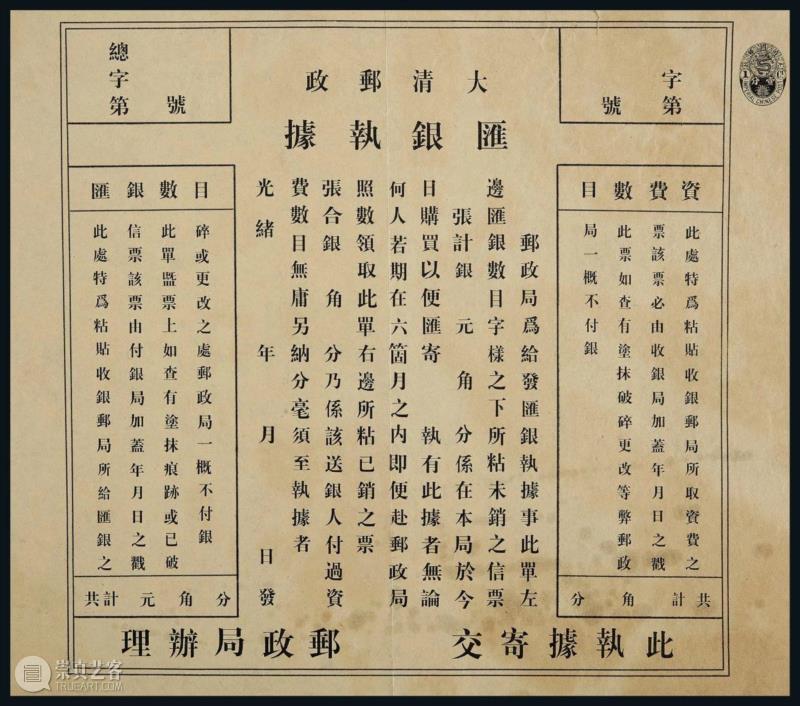 字第 號
大清郵政
匯銀執據
總字第 號
資費數目
此處特爲粘貼收銀郵局所取資費之
票該票必由收銀局加蓋年月日之戳
此票如查有塗抹破碎更改等弊郵政
局一概不付銀
共計 角 分
郵政局爲給發匯銀執據事此單左
邊匯銀數目字樣之下所粘未銷之信票
張計銀 元 角 分係在本局於今
日購買以便匯寄 執有此據者無論
何人若期在六箇月之內即便赴郵政局
照數領取此單右邊所粘已銷之票
張合銀 角 分乃係該送銀人付過資
費數目無庸另納分毫須至執據者
光緒 年 月 日發
匯銀數目
此處特爲粘貼收銀郵局所給匯銀之
信票該票由付銀局加蓋年月日之戳
此單曁票上如查有塗抹痕跡或已破
碎或更改之處郵政局一概不付銀
共計 元 角 分
此執據寄交 郵政局辦理
IMPERIAL CHINESE POST
崇真艺客
TRUEART.COM